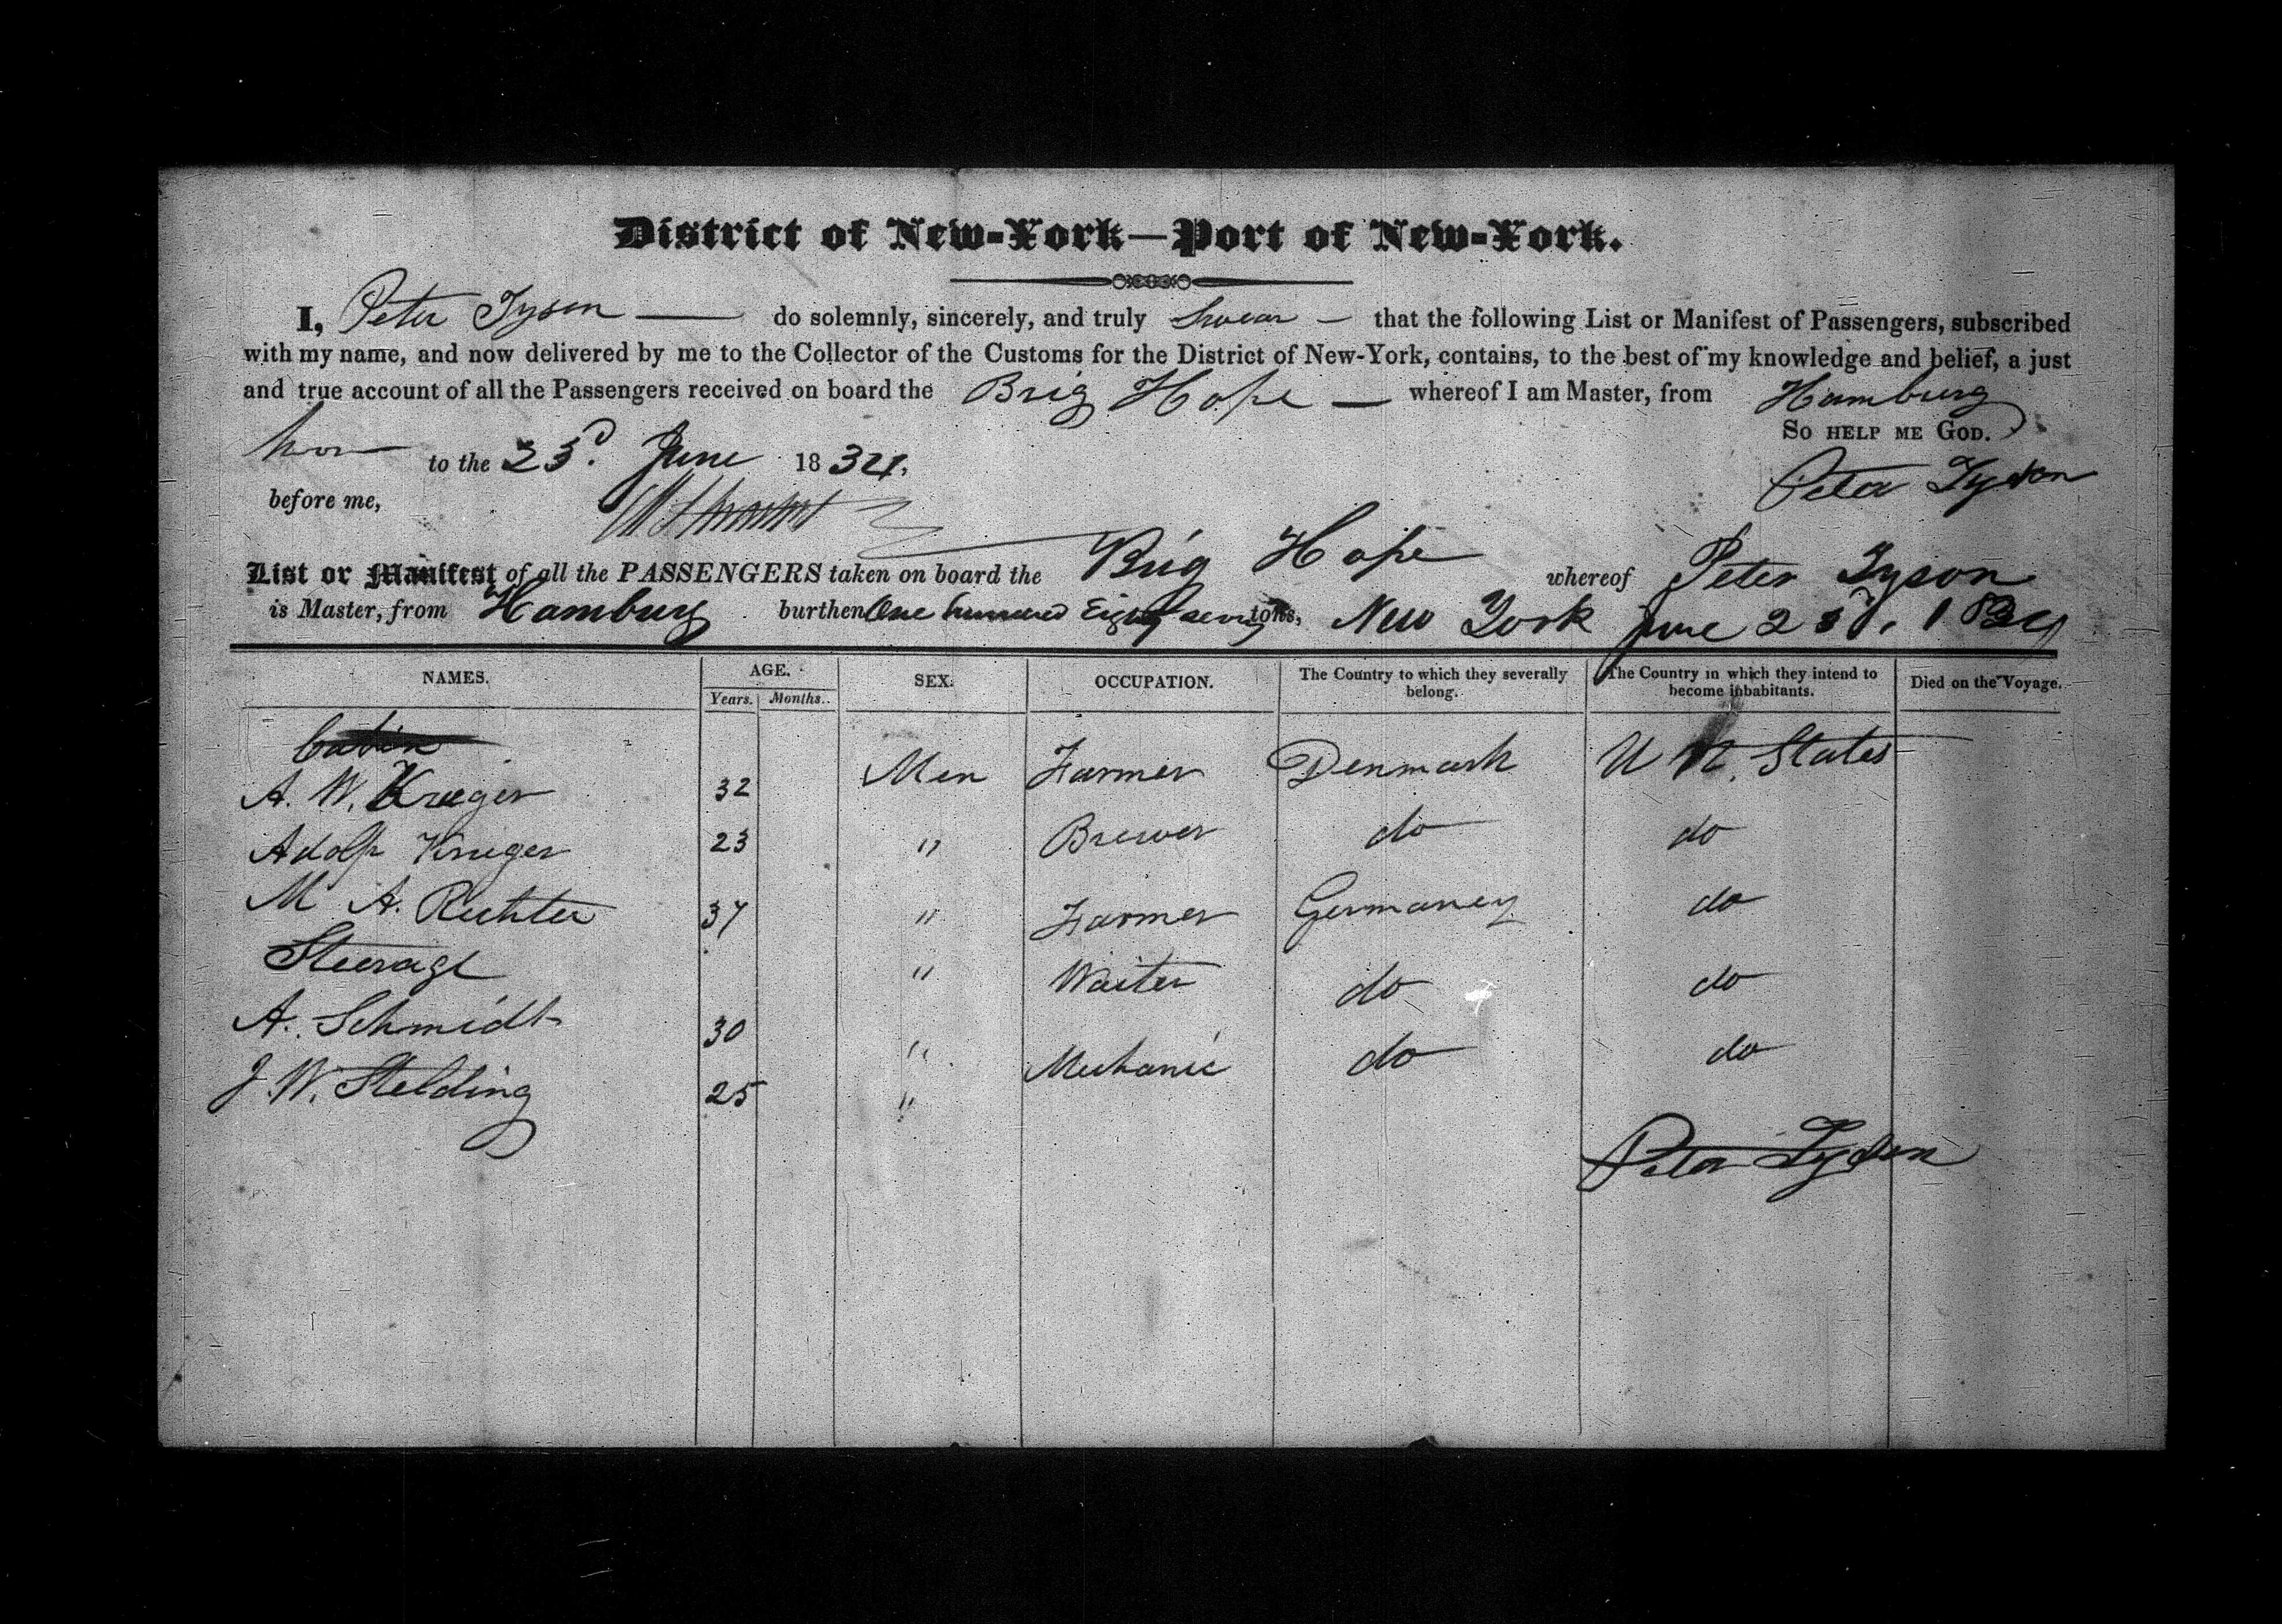 District of New-York—Port of New-York.
I, Peter Tyson — do solemnly, sincerely, and truly Swear — that the following List or Manifest of Passengers, subscribed
with my name, and now delivered by me to the Collector of the Customs for the District of New-York, contains, to the best of my knowledge and belief, a just
and true account of all the Passengers received on board the Brig Hope — whereof I am Master, from Hamburg
So help me God.
to the 23d. June 1834.
Peter Tyson
before me,
List or Manifest of all the PASSENGERS taken on board the Brig Hope whereof Peter Tyson
is Master, from Hamburg burthen One hundred Eighty seven tons, New York June 23d. 1834
NAMES. AGE. SEX. OCCUPATION. The Country to which they severally belong. The Country in which they intend to become inhabitants. Died on the Voyage.
Years. Months.
Cabin
A. W. Krueger 32 Men Farmer Denmark U N. States
Adolp Krueger 23 " Brewer do do
M A. Richter 37 " Farmer Germaney do
Steerage " Waiter do do
A. Schmidt 30 " Mechanic do do
J. W. Stelding 25 "
Peter Tyson